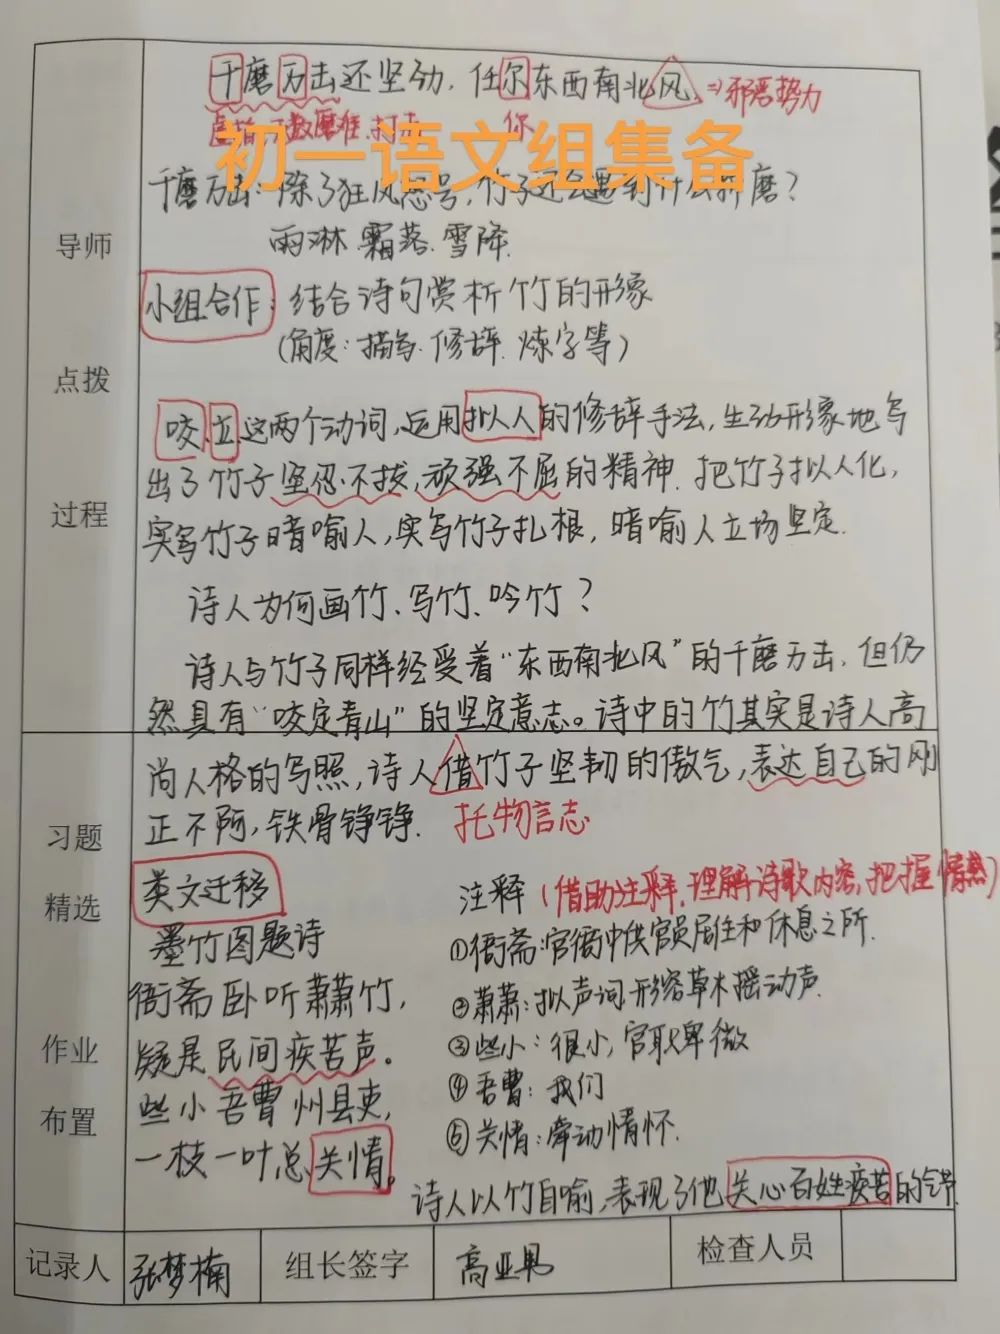 千磨万击还坚劲，任尔东西南北风 ⇒邪恶势力
你
初一语文组集备
千磨万击：除了狂风怒号，竹子还会遇到什么折磨？
雨淋、霜落、雪降.
导师
小组合作：结合诗句赏析竹的形象
(角度：描写、修辞、炼字等)
点拨
咬、立这两个动词，运用拟人的修辞手法，生动形象地写
出了竹子坚忍不拔，顽强不屈的精神. 把竹子拟人化，
过程
实写竹子暗喻人，实写竹子扎根，暗喻人立场坚定.
诗人为何画竹、写竹、吟竹？
诗人与竹子同样经受着“东西南北风”的千磨万击，但仍
然具有“咬定青山”的坚定意志。诗中的竹其实是诗人高
尚人格的写照，诗人借竹子坚韧的傲气，表达自己的刚
正不阿，铁骨铮铮. 托物言志
习题
精选
类文迁移
注释（借助注释，理解诗歌内容，把握情感）
墨竹图题诗
①衙斋：官衙中供官员居住和休息之所.
衙斋卧听萧萧竹，
②萧萧：拟声词，形容草木摇动声.
疑是民间疾苦声。
③些小：很小，官职卑微
作业
布置
些小吾曹州县吏，
④吾曹：我们
一枝一叶总关情。
⑤关情：牵动情怀.
诗人以竹自喻，表现了他关心百姓疾苦的气节.
记录人 张梦楠 组长签字 高亚男 检查人员